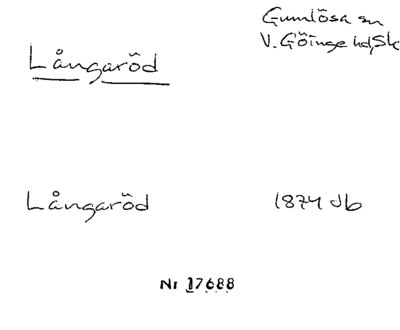 Gumlösa sn
V. Göinge hd, Sk
Långaröd
Långaröd 1874 db
Nr 17688